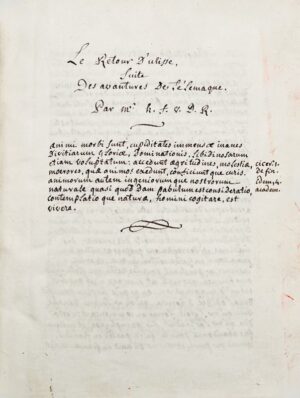 Le Retour D'ulisse,
Suite
Des avantures De Télémaque.
Par mr. h. f. v. D. R.
animi morbi sunt, cupiditates immensæ et inanes
Divitiarum Gloriæ, Dominationis, Libidinosarum
etiam voluptatum: accedunt ægritudines, molestiæ,
mœrores, quæ animos exedunt, conficiuntque curis.
animorum autem ingeniorumque nostrorum
naturale quasi quod Dam pabulum est consideratio,
contemplatio que naturæ, homini cogitare, est
vivere.
cicer. l.
de fin.